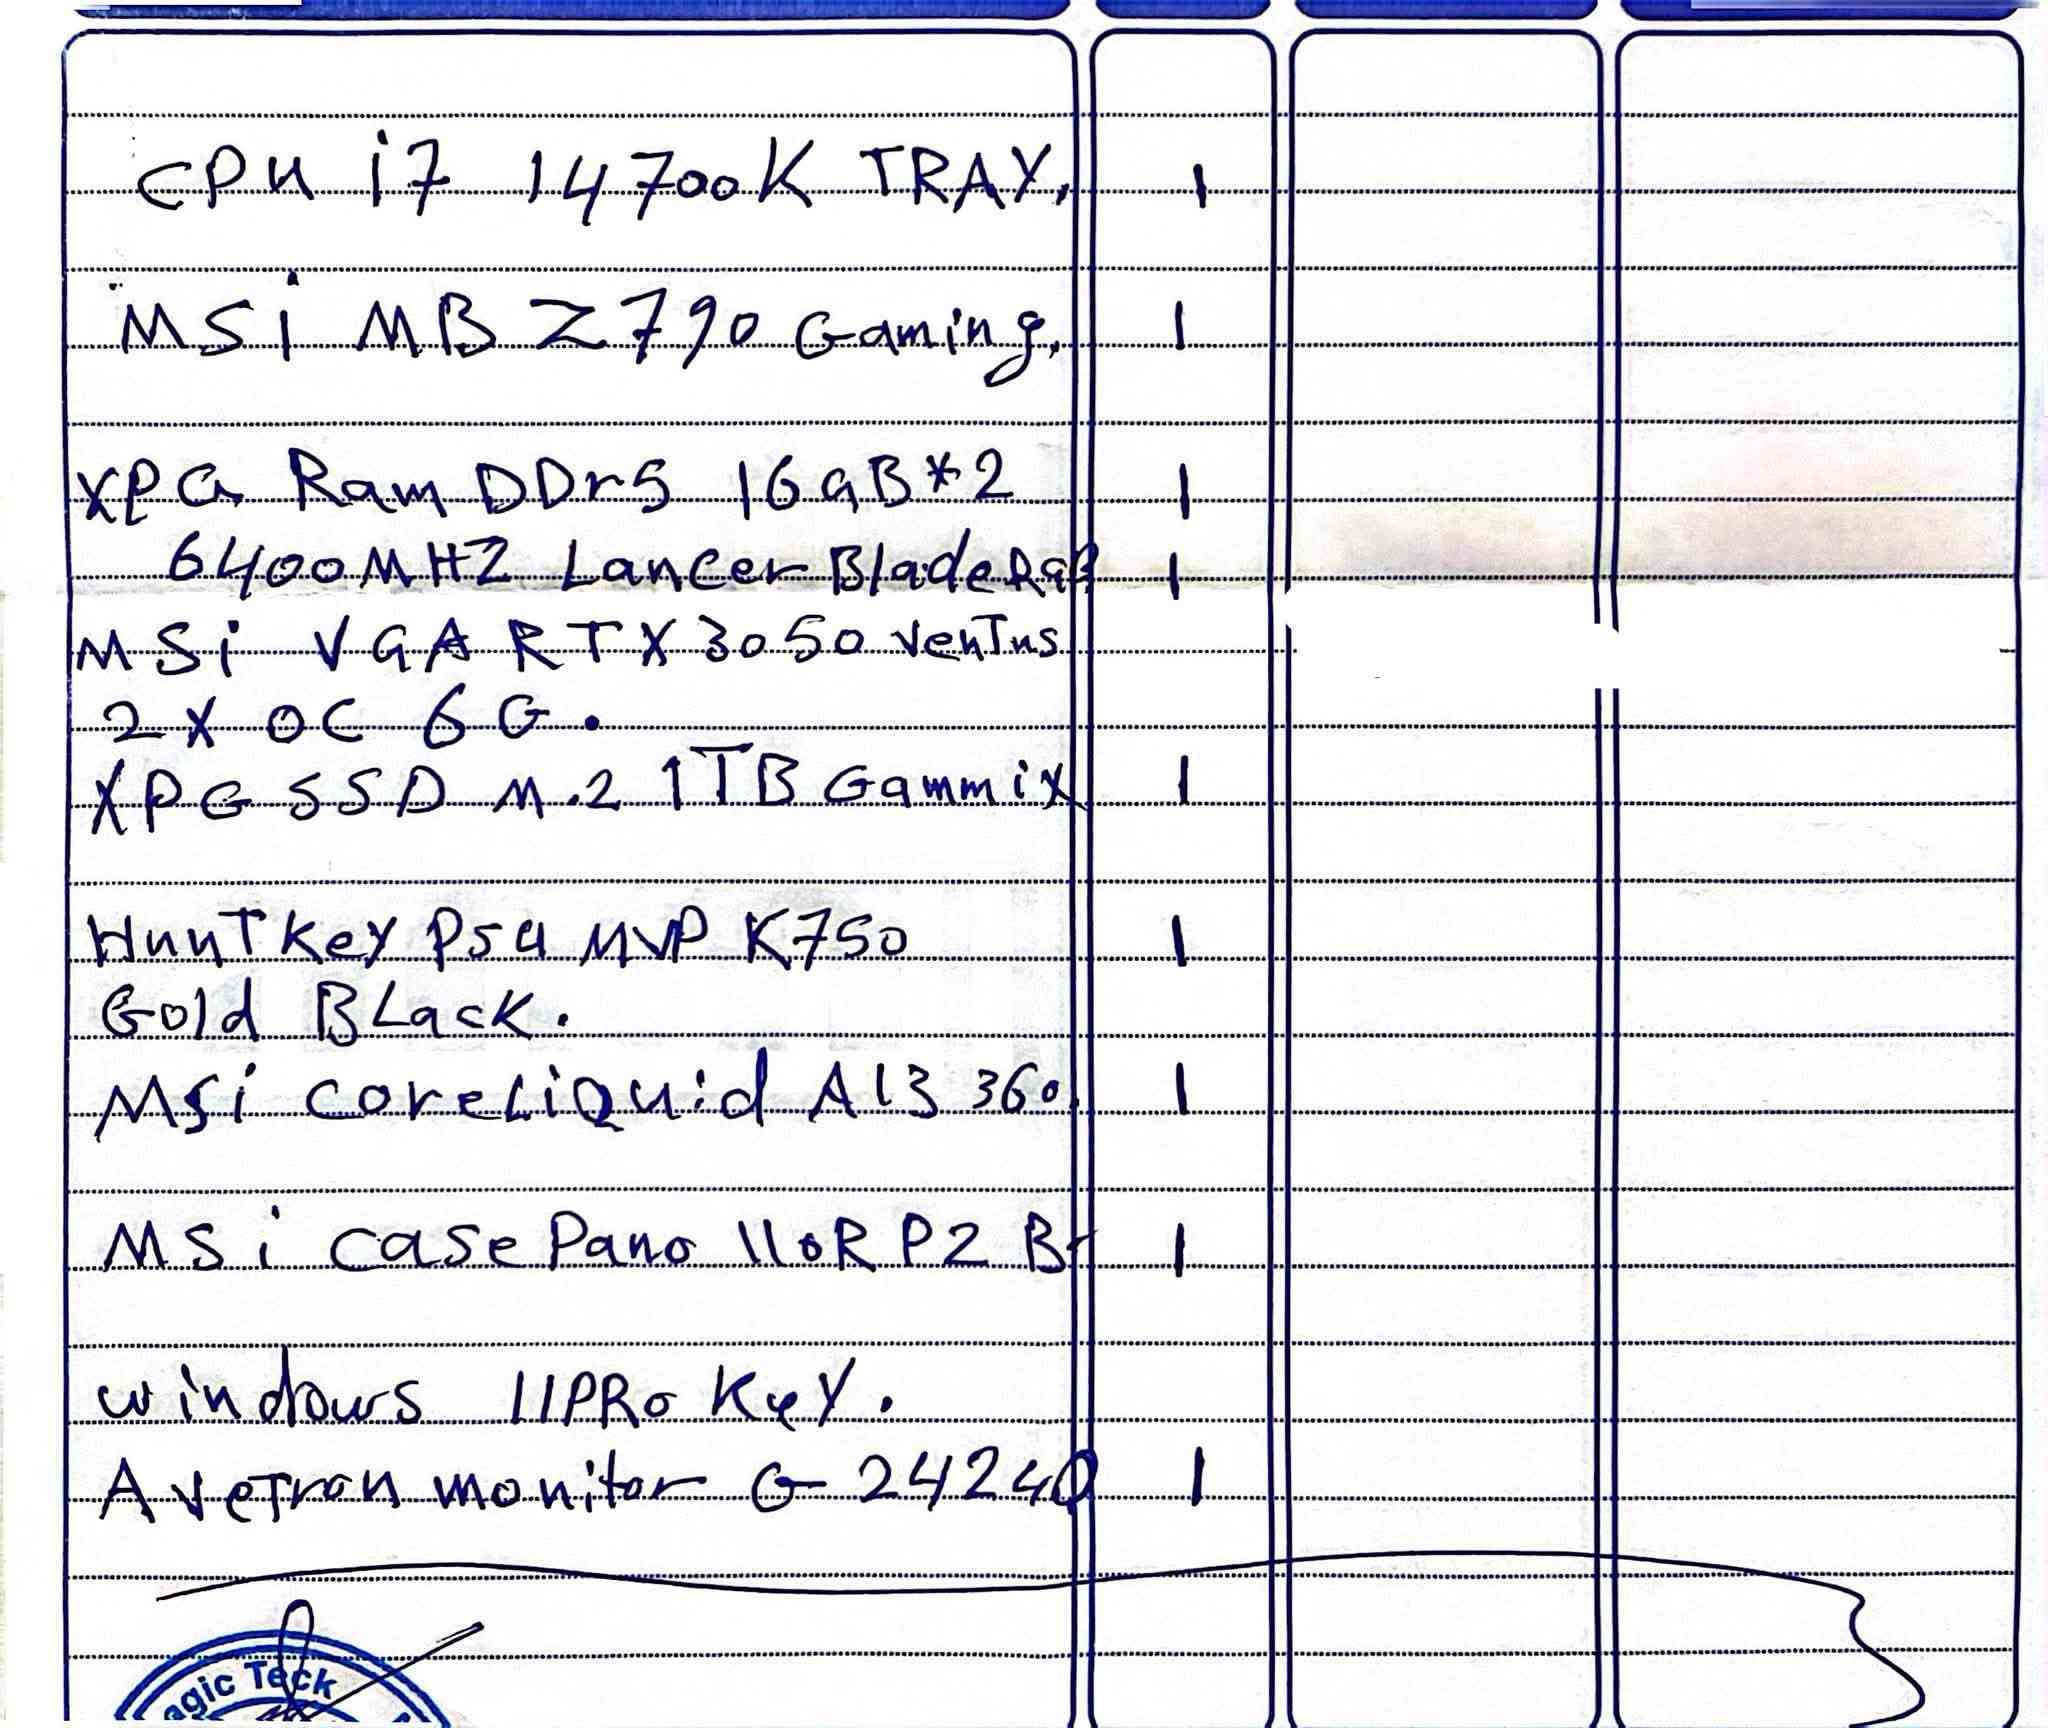 CPU i7 14700K TRAY. 1
MSi MB Z790 Gaming. 1
XPG Ram DDr5 16GB*2 1
6400MHZ Lancer Blade RGB 1
MSi VGA RTX 3050 VenTus
2X OC 6G.
XPG SSD M.2 1TB Gammix 1
HunTKeY PSU MVP K750 1
Gold BLack.
MSi coreLiQuid A13 360. 1
MSi case Pano 110R P2 B- 1
windows 11PRo KeY.
AveTron monitor G-2424Q 1
Teck